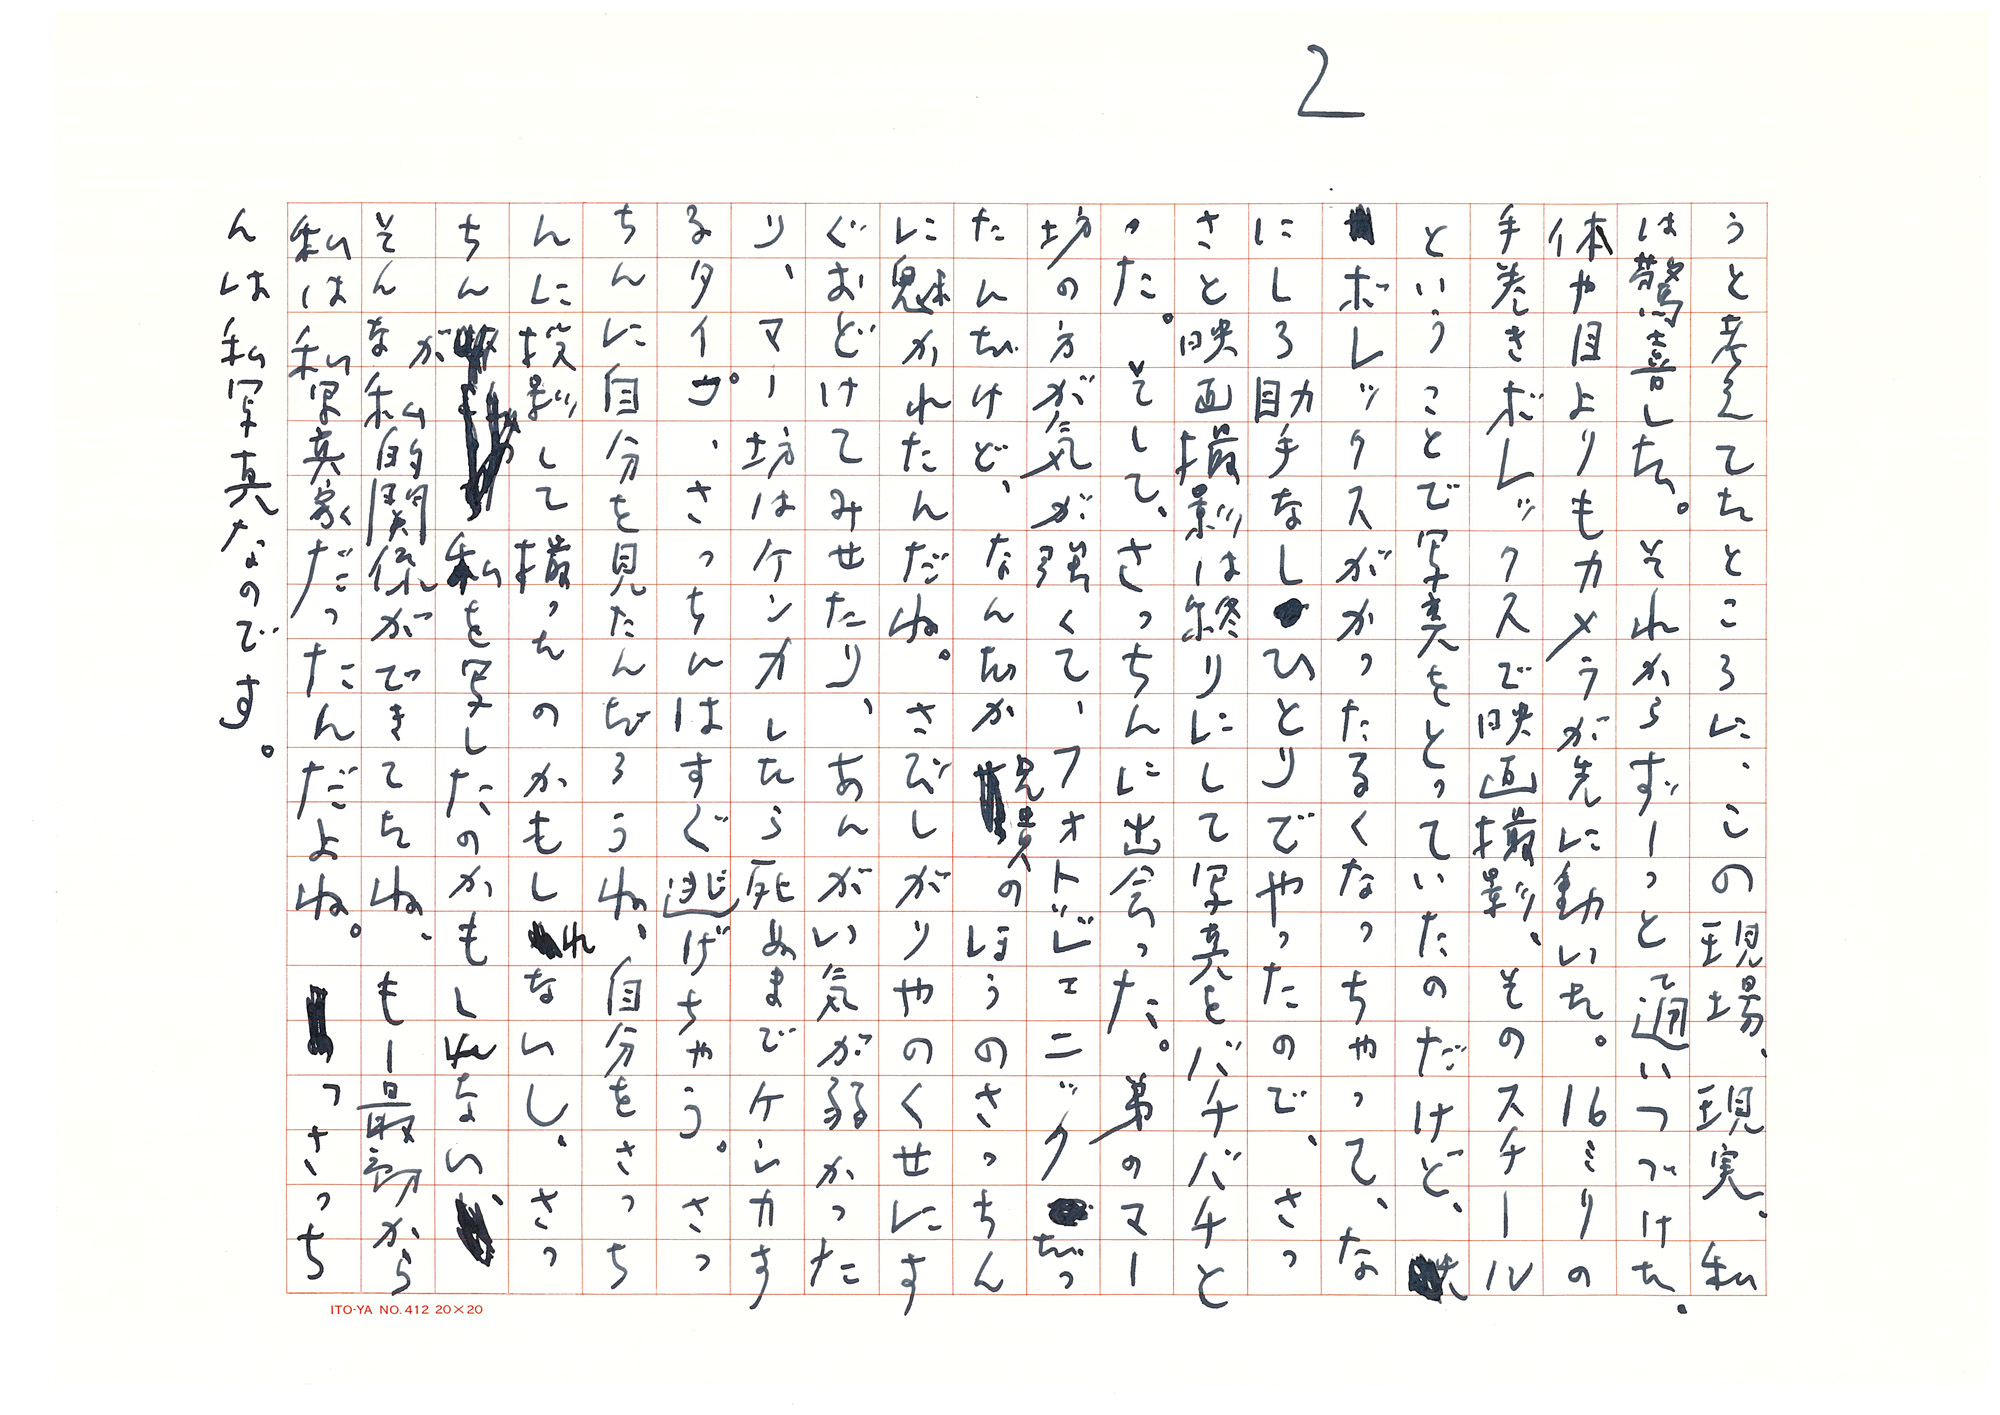 2
うと考えてたところに、この現場、現実。私
は驚喜した。それからずーっとで通いつづけた。
体や目よりもカメラが先に動いた。16ミリの
手巻きボレックスで映画撮影、そのスチール
ということで写真をとっていたのだけど、
ボレックスがかったるくなっちゃって、な
にしろ助手なしひとりでやったので、さっ
さと映画撮影は終りにして写真をバチバチと
った。そして、さっちんに出会った。弟のマー
坊の方が気が強くて、フォトジェニックだっ
たんだけど、なんだか兄貴のほうのさっちん
に魅かれたんだね。さびしがりやのくせにす
ぐおどけてみせたり、あんがい気が弱かった
り、マー坊はケンカしたら死ぬまでケンカす
るタイプ、さっちんはすぐ逃げちゃう。さっ
ちんに自分を見たんだろうね、自分をさっち
んに投影して撮ったのかもしれないし、さっ
ちんが私を写したのかもしれない、
そんな私的関係ができてたね、もー最初から
私は私写真家だったんだよね。っさっち
んは私写真なのです。
ITO-YA NO.412 20×20